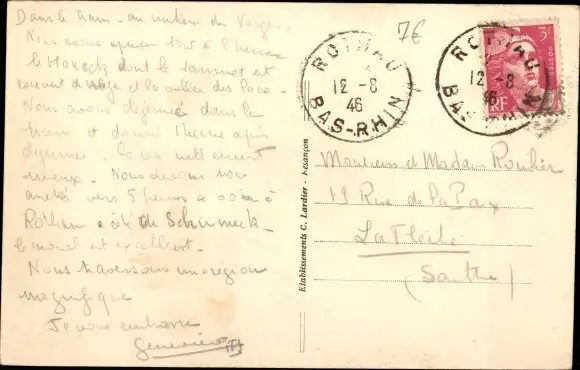 Dans le train - au milieu des Vosges
Nous avons aperçu tout à l'heure
le dont le sommet est
couvert de et la
Nous avons déjeuné dans le
train et dormi 1 heure après
déjeuner. Ça va nettement
mieux. Nous devons
vers 5 heures ce soir à
Rothau à côté de Schirmeck -
le est
Nous traversons une région
magnifique
Je vous embrasse
Geneviève
7€
ROTHAU
12 -8
46
BAS-RHIN
ROTHAU
12 -8
46
BAS-RHIN
3F
RF
Etablissements C. Lardier - Besançon
Monsieur et Madame
19 Rue de la Paix
La Flèche
(Sarthe)